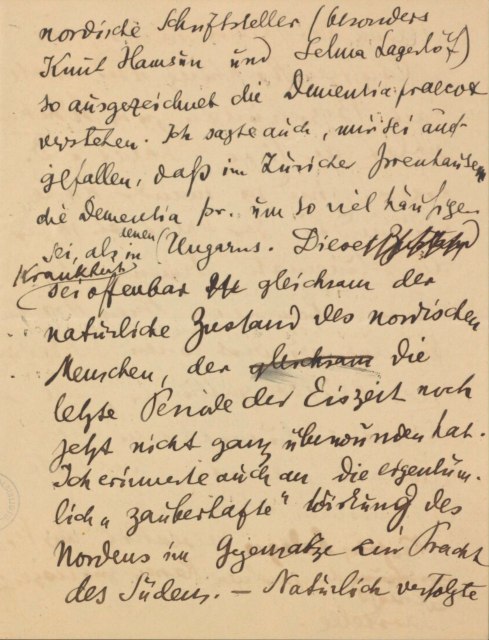 nordische Schriftsteller (besonders
Knut Hamsun und Selma Lagerlöf)
so ausgezeichnet die Dementia praecox
verstehen. Ich sagte auch, mir sei auf-
gefallen, daß im Züricher Irrenhause
die Dementia pr. um so viel häufiger
sei, als in denen Ungarns. Diese
Krankheit
sei offenbar gleichsam der
natürliche Zustand des nordischen
Menschen, der gleichsam die
letzte Periode der Eiszeit noch
jetzt nicht ganz überwunden hat.
Ich erinnerte auch an die eigentüm-
lich „zauberhafte“ Wirkung des
Nordens im Gegensatze zur Pracht
des Südens. – Natürlich verfolgte